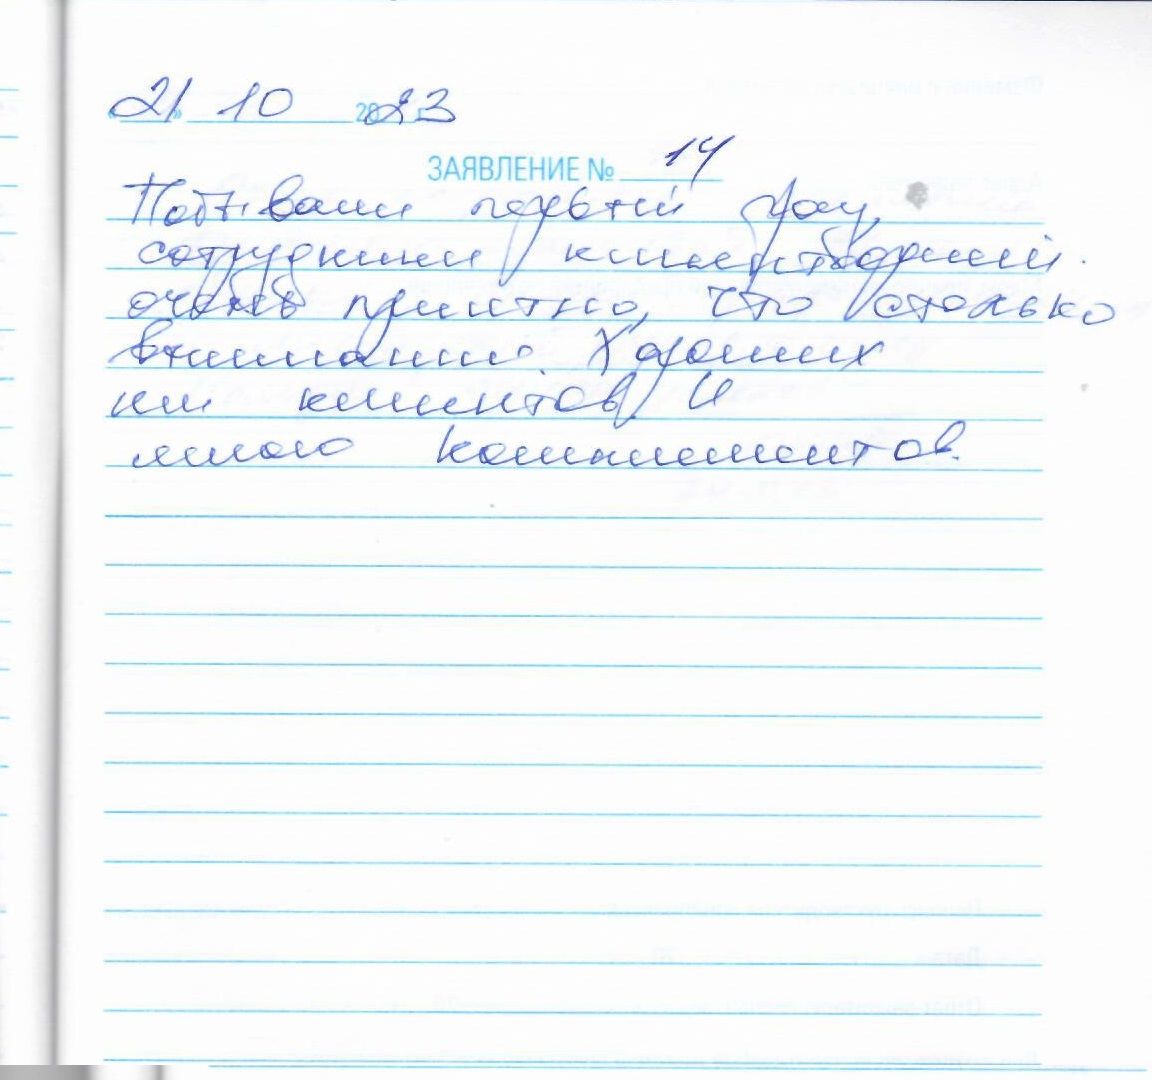 21 10 2023
ЗАЯВЛЕНИЕ № 14
Побывали первый раз,
сотрудники клиентоориен.
очень приятно, что столько
внимания. Хороших
им клиентов и
много комплиментов.